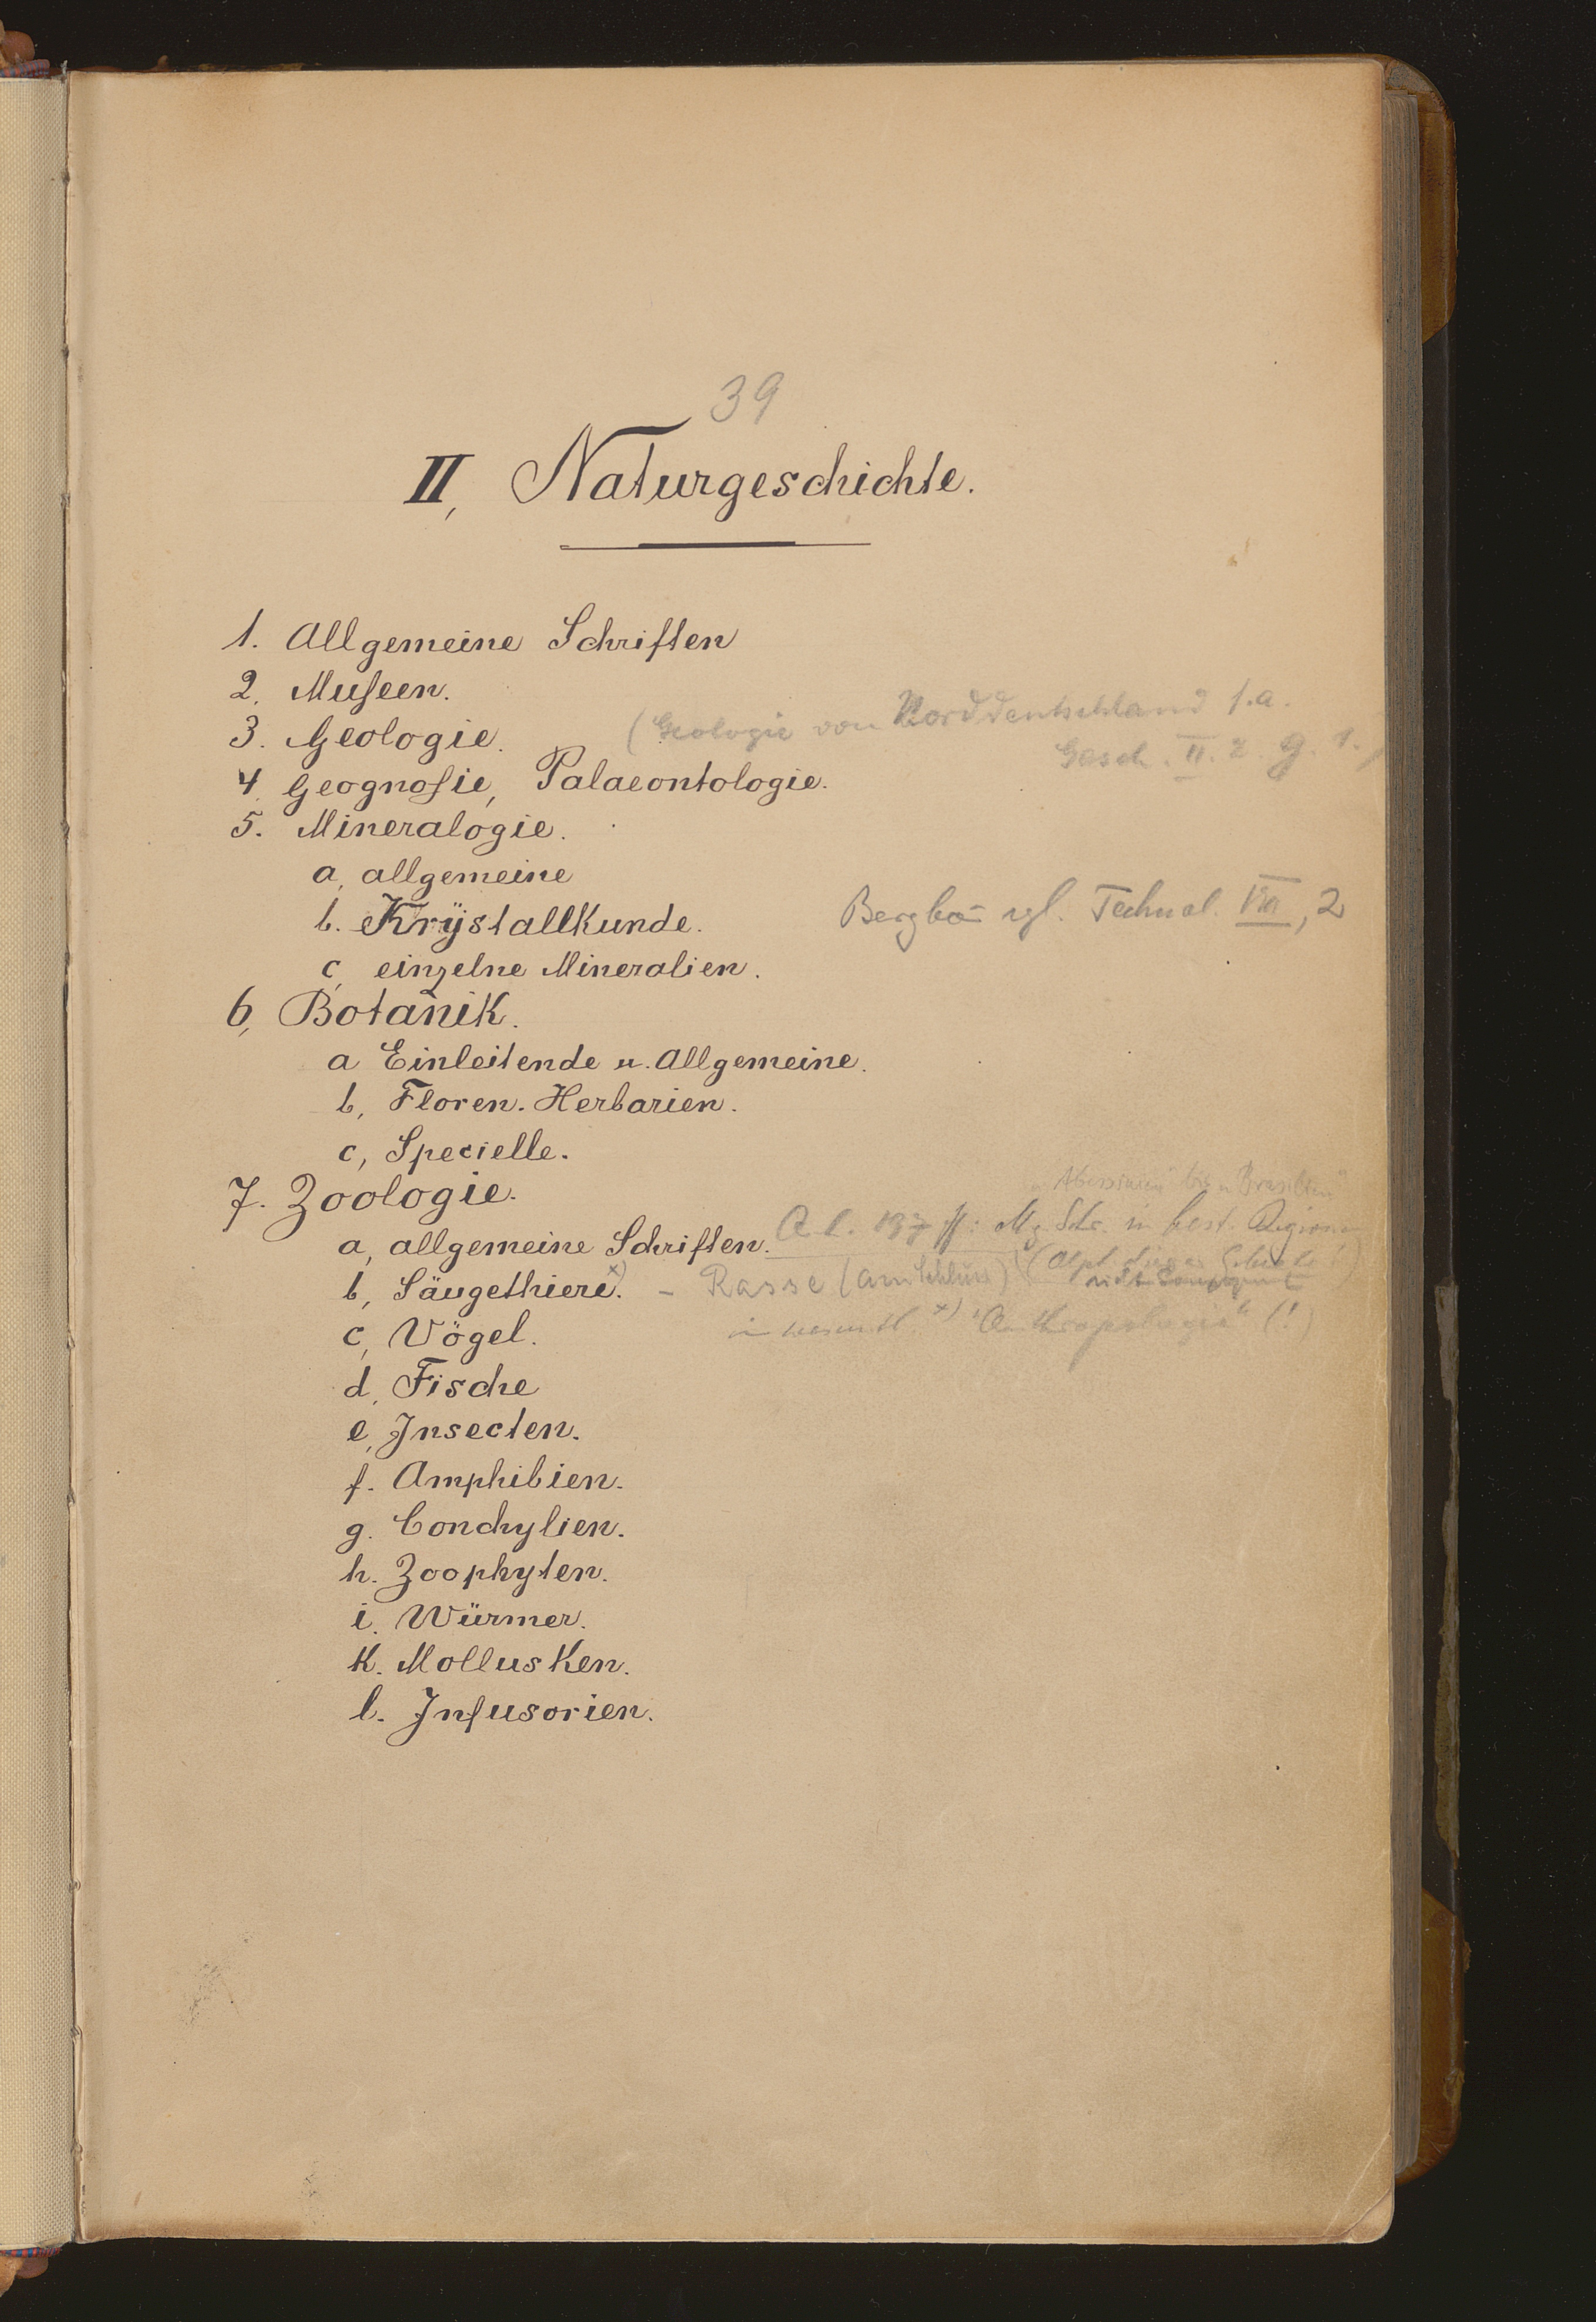 39
II, Naturgeschichte.
1. Allgemeine Schriften
2. Museen.
3. Geologie. (Geologie von Norddeutschland s.a.
Gesch. II. 2. g. 1.)
4. Geognosie, Palaeontologie.
5. Mineralogie.
a, allgemeine
b. Krÿstallkunde. Bergbau vgl. Technol. VII, 2
c, einzelne Mineralien.
6, Botanik.
a Einleitende u. Allgemeine.
b, Floren. Herbarien.
c, Specielle.
7. Zoologie.
Abessinien bis Brasilien
a, allgemeine Schriften. ff: in best. Region
b, Säugethiere. x) – Rasse (am Schluss)
c, Vögel. x) "Anthropologie" (!)
d, Fische
e, Insecten.
f. Amphibien.
g. Conchylien.
h. Zoophyten.
i. Würmer.
k. Mollusken.
l. Infusorien.